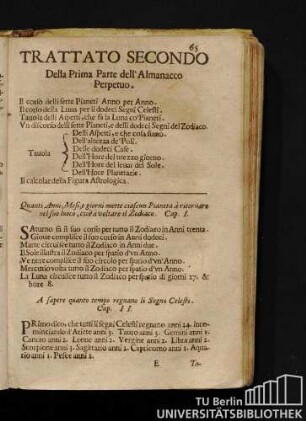 65
TRATTATO SECONDO
Della Prima Parte dell'Almanacco
Perpetuo.
Il corso delli sette Pianeti Anno per Anno.
Il corso della Luna per li dodeci Segni Celesti.
Tavola delli Aspetti, che fà la Luna co'Pianeti.
Vn discorso delli sette Pianeti, e delli dodeci Segni del Zodiaco.
Delli Aspetti, e che cosa siano.
Dell'altezza de'Poli.
Delle dodeci Case.
Tavola
Dell'Hore del mezzo giorno.
Dell'Hore del levar del Sole.
Dell'Hore Planetarie.
Il calcolar della Figura Astrologica.
Quanti Anni, Mesi, e giorni mette ciascun Pianeta à ritornare
nel suo luoco, cioè à voltare il Zodiaco. Cap. I.
SAturno fà il suo corso per tutto il Zodiaco in Anni trenta.
Giove complisce il suo corso in Anni dodeci.
Marte circuisce tutto il Zodiaco in Anni due.
Il Sole illustra il Zodiaco per spatio d'vn Anno.
Venere complisce il suo circolo per spatio d'vn'Anno.
Mercurio volta tutto il Zodiaco per spatio d'vn Anno.
La Luna circuisce tutto il Zodiaco per spatio di giorni 27. &
hore 8.
A sapere quanto tempo regnano li Segni Celesti.
Cap. II.
PRimo dico, che tutti li segni Celesti regnano anni 24. inco-
minciando d'Ariete anni 3. Tauro anni 3. Gemini anni 1.
Cancro anni 2. Leone anni 2. Vergine anni 2. Libra anni 2.
Scorpione anni 3. Sagittario anni 2. Capricorno anni 1. Aqua-
rio anni 1. Pesce anni 2.
E To-
TU Berlin
UNIVERSITÄTSBIBLIOTHEK